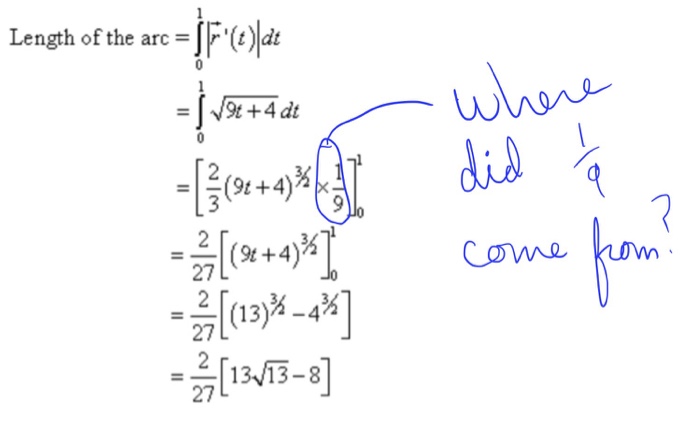 Length of the arc = ∫₀¹ |r⃗ '(t)| dt
= ∫₀¹ √(9t + 4) dt
= [2/3 (9t + 4)^(3/2) × 1/9]₀¹
= 2/27 [(9t + 4)^(3/2)]₀¹
= 2/27 [(13)^(3/2) − 4^(3/2)]
= 2/27 [13√13 − 8]
Where
did 1/9
come from?